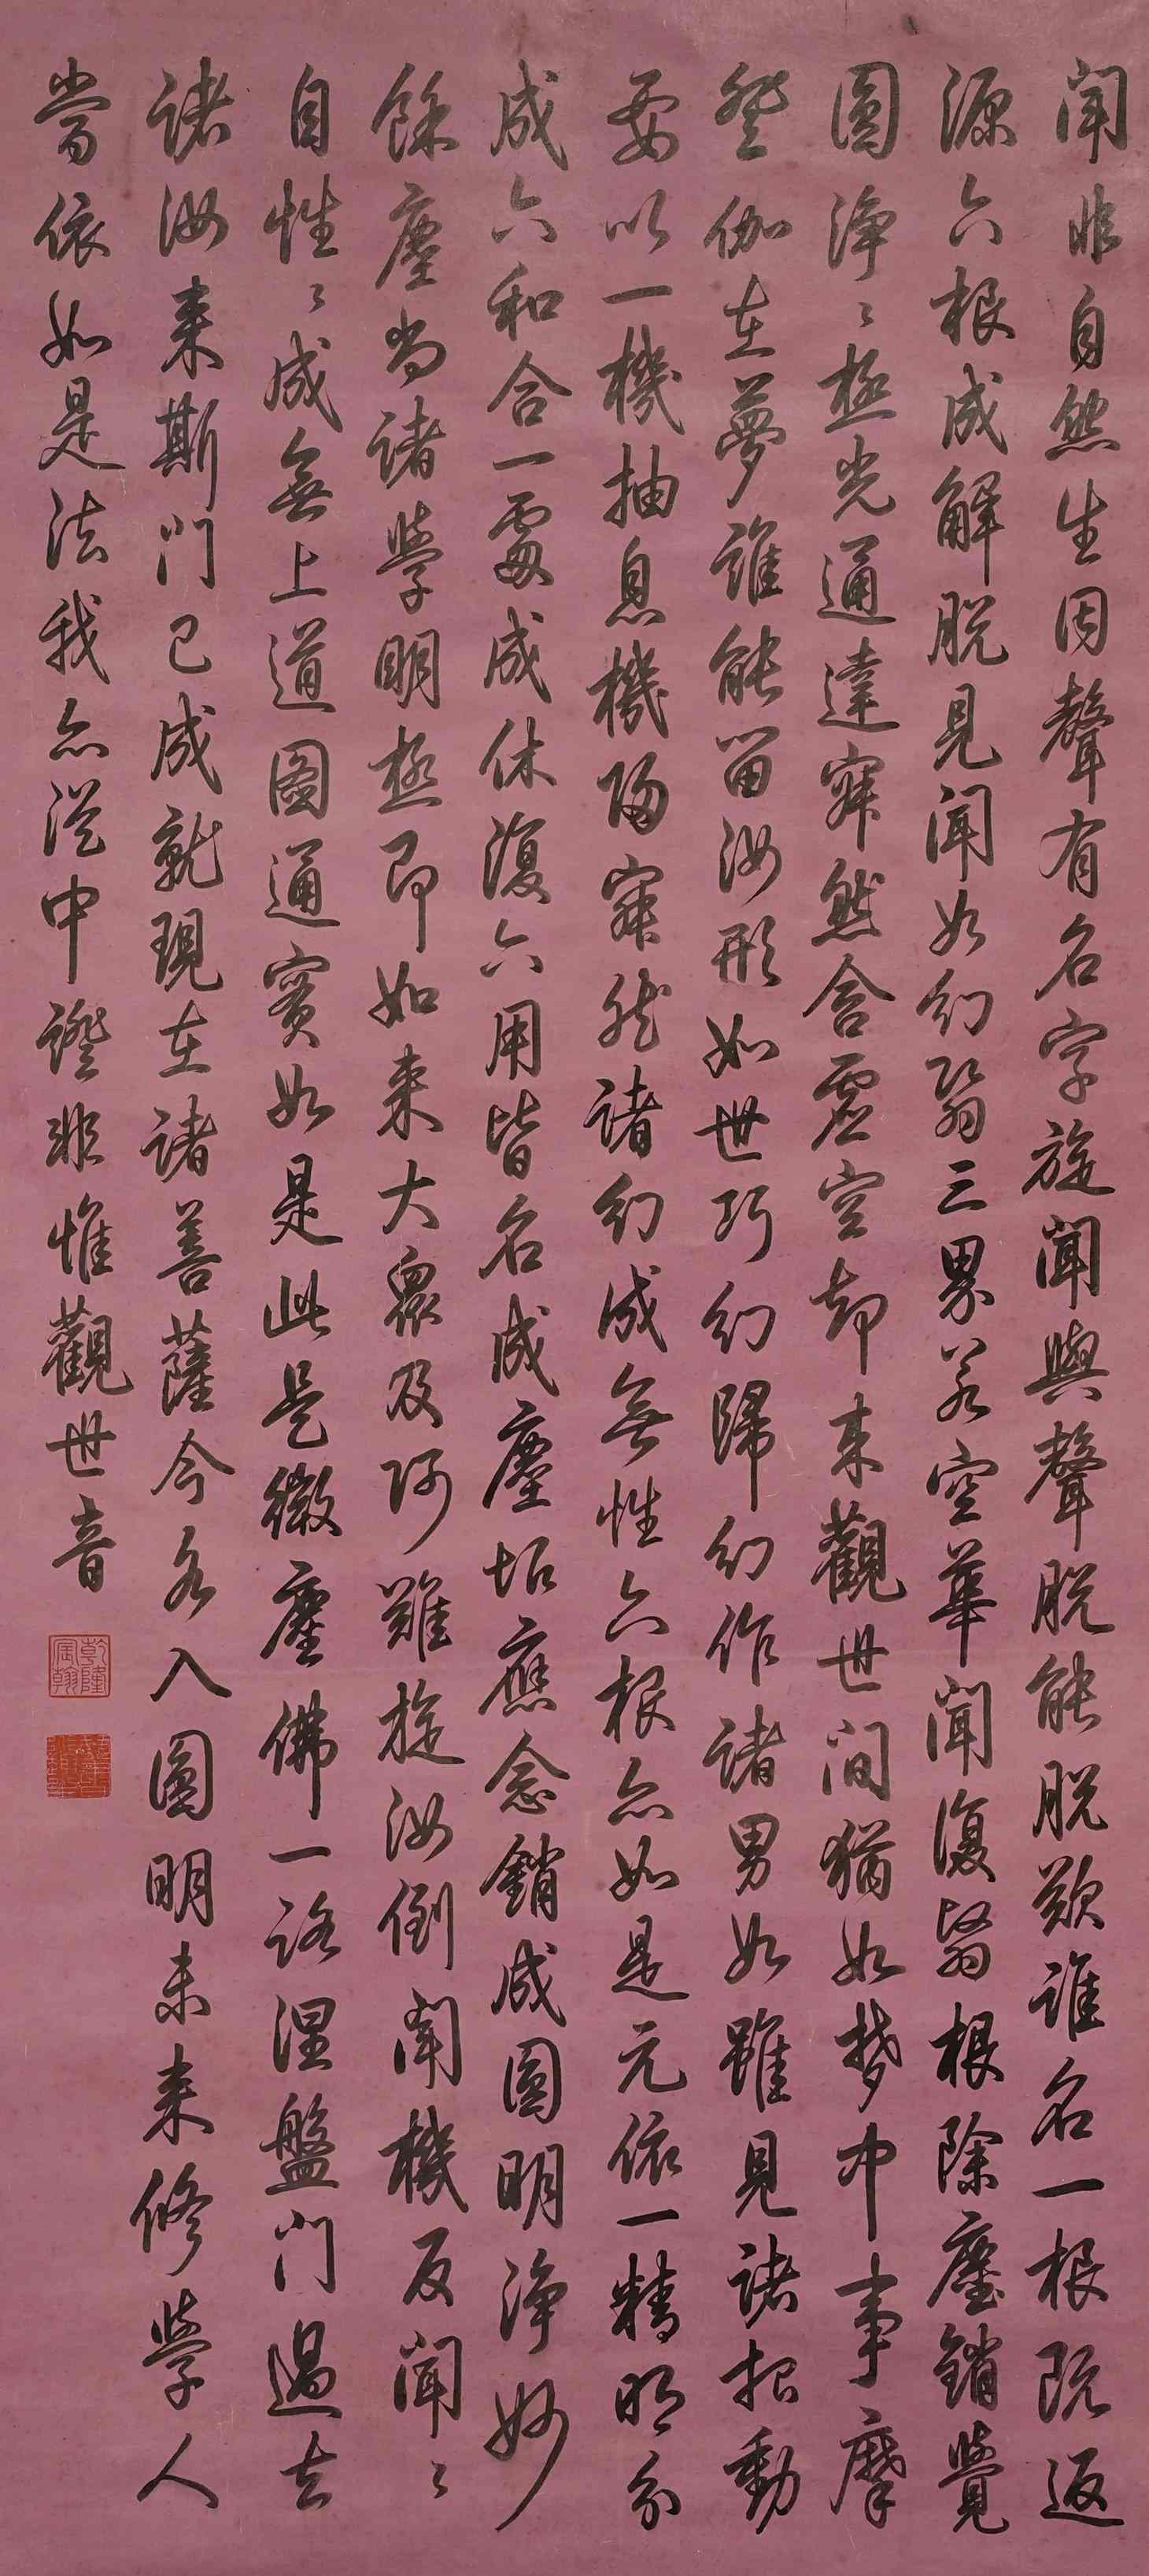 聞非自然生因聲有名字旋聞與聲脫能脫欲誰名一根既返
源六根成解脫見聞如幻翳三界若空華聞復翳根除塵銷覺
圓淨〻極光通達寂然含虛空却來觀世間猶如夢中事摩
登伽在夢誰能留汝形如世巧幻師幻作諸男女雖見諸根動
要以一機抽息機歸寂然諸幻成無性六根亦如是元依一精明分
成六和合一處成休復六用皆不成塵垢應念銷成圓明淨妙
餘塵尚諸學明極即如來大眾及阿難旋汝倒聞機反聞〻
自性〻成無上道圓通實如是此是微塵佛一路涅盤門過去
諸如來斯門已成就現在諸菩薩今各入圓明未來修學人
當依如是法我亦從中證非惟觀世音
乾隆宸翰